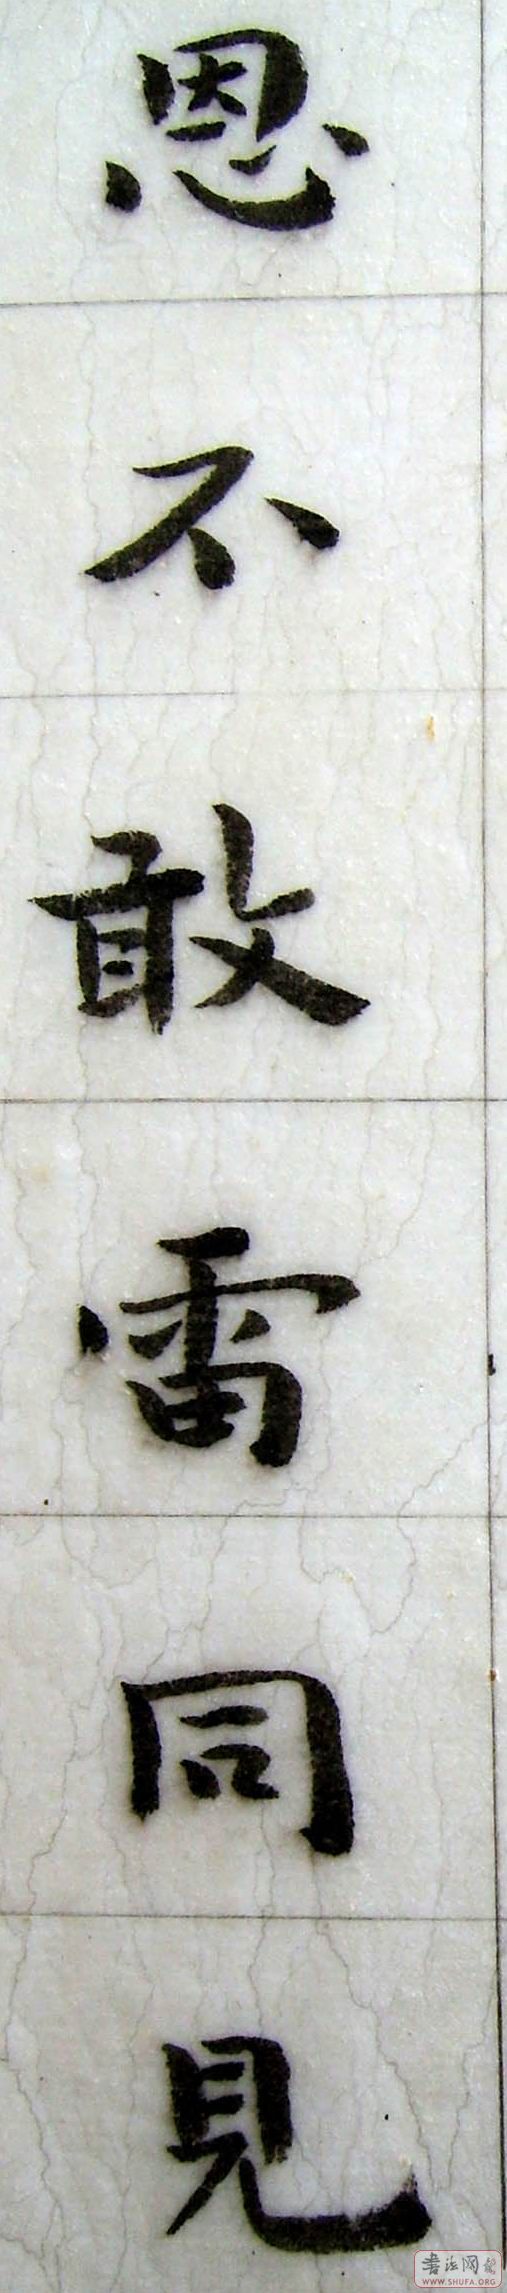 恩不敢雷同見
書法网
WWW.SHUFA.ORG